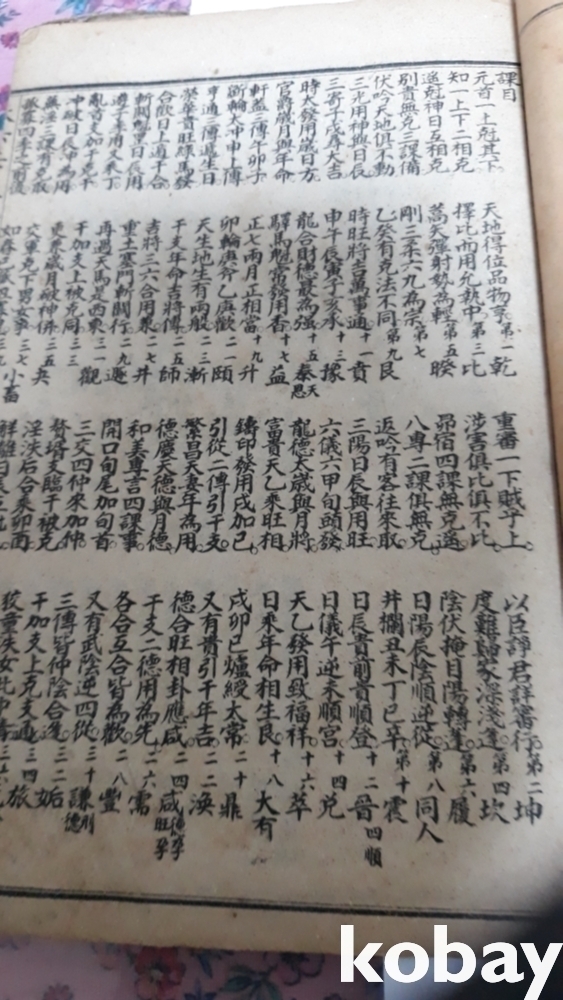 課目
元首一上尅其下 天地得位品物亨 第一乾 重審一下賊子上 以臣諍君詳審行 第二坤
知一上下二相克 擇比而用允執中 第三比 涉害俱比俱不比 度難歸家深淺逢 第四坎
遙尅神日互相克 蒿矢彈射勢為輕 第五睽 昴宿四課無克遙 陰伏掩目陽轉逢 第六履
別責無克三課備 剛三柔六九為宗 第七 八專二課俱無克 日陽辰陰順逆從 第八同人
伏吟天地俱不動 乙癸有克法不同 第九艮 返吟有客往來取 井欄丑未丁己辛 第十震
三光用神與日辰 時旺將吉萬事通 十一賁 三陽日辰與用旺 日辰貴前貴順登 十二晉 四順
三寄子戌辰大吉 申午辰寅子亥承 十三豫 六儀六甲旬頭發 日儀午逆未順宮 十四兌
時太發用歲日方 龍合財德最為強 十五泰 天恩 龍德太歲與月將 天乙發用致福祥 十六萃
官爵歲月與年命 驛馬魁常發用香 十七益 富貴天乙乘旺相 日乘年命相生良 十八大有
軒蓋三傳午卯子 正七兩月正相當 十九升 鑄印發用戌加巳 戌卯巳爐綬太常 二十鼎
斲輪太冲申上傳 卯輪庚斧乙庚歡 二一頤 引從二傳引干支 又有貴引干年吉 二二渙
亨通三傳遞生日 天生地生有兩般 二三漸 繁昌夫妻年為用 德合旺相卦應咸 二四咸 德孕 旺孕
榮華貴旺祿馬發 干支年命吉將傳 二五師 德慶天德與月德 干支二德用為先 二六需
合歡日上遁干合 吉將三六合用泉 二七井 和美專言四課事 各合互合皆為歡 二八豐
斬關魁罡日辰用 重土塞門斬關行 二九遯 閉口旬尾加旬首 又有武陰逆四從 三十謙 刑德
遊子季用又來丁 再遇天馬是西東 三一觀 三交四仲來加仲 三傳皆仲陰合逢 三二姤
亂首支加干克干 干加支上被克同 三三 贅壻支臨干被克 干加支上克支通 三四旅
冲破日辰冲為用 更乘歲月破神併 三五夬 淫泆后合乘卯酉 狡童泆女此中
蕪淫三課有克取 交車克下男女爭 三七小畜 解離
kobay